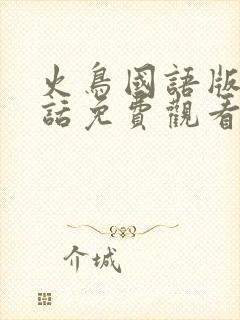 火鳥國語版
話免費觀看
介城